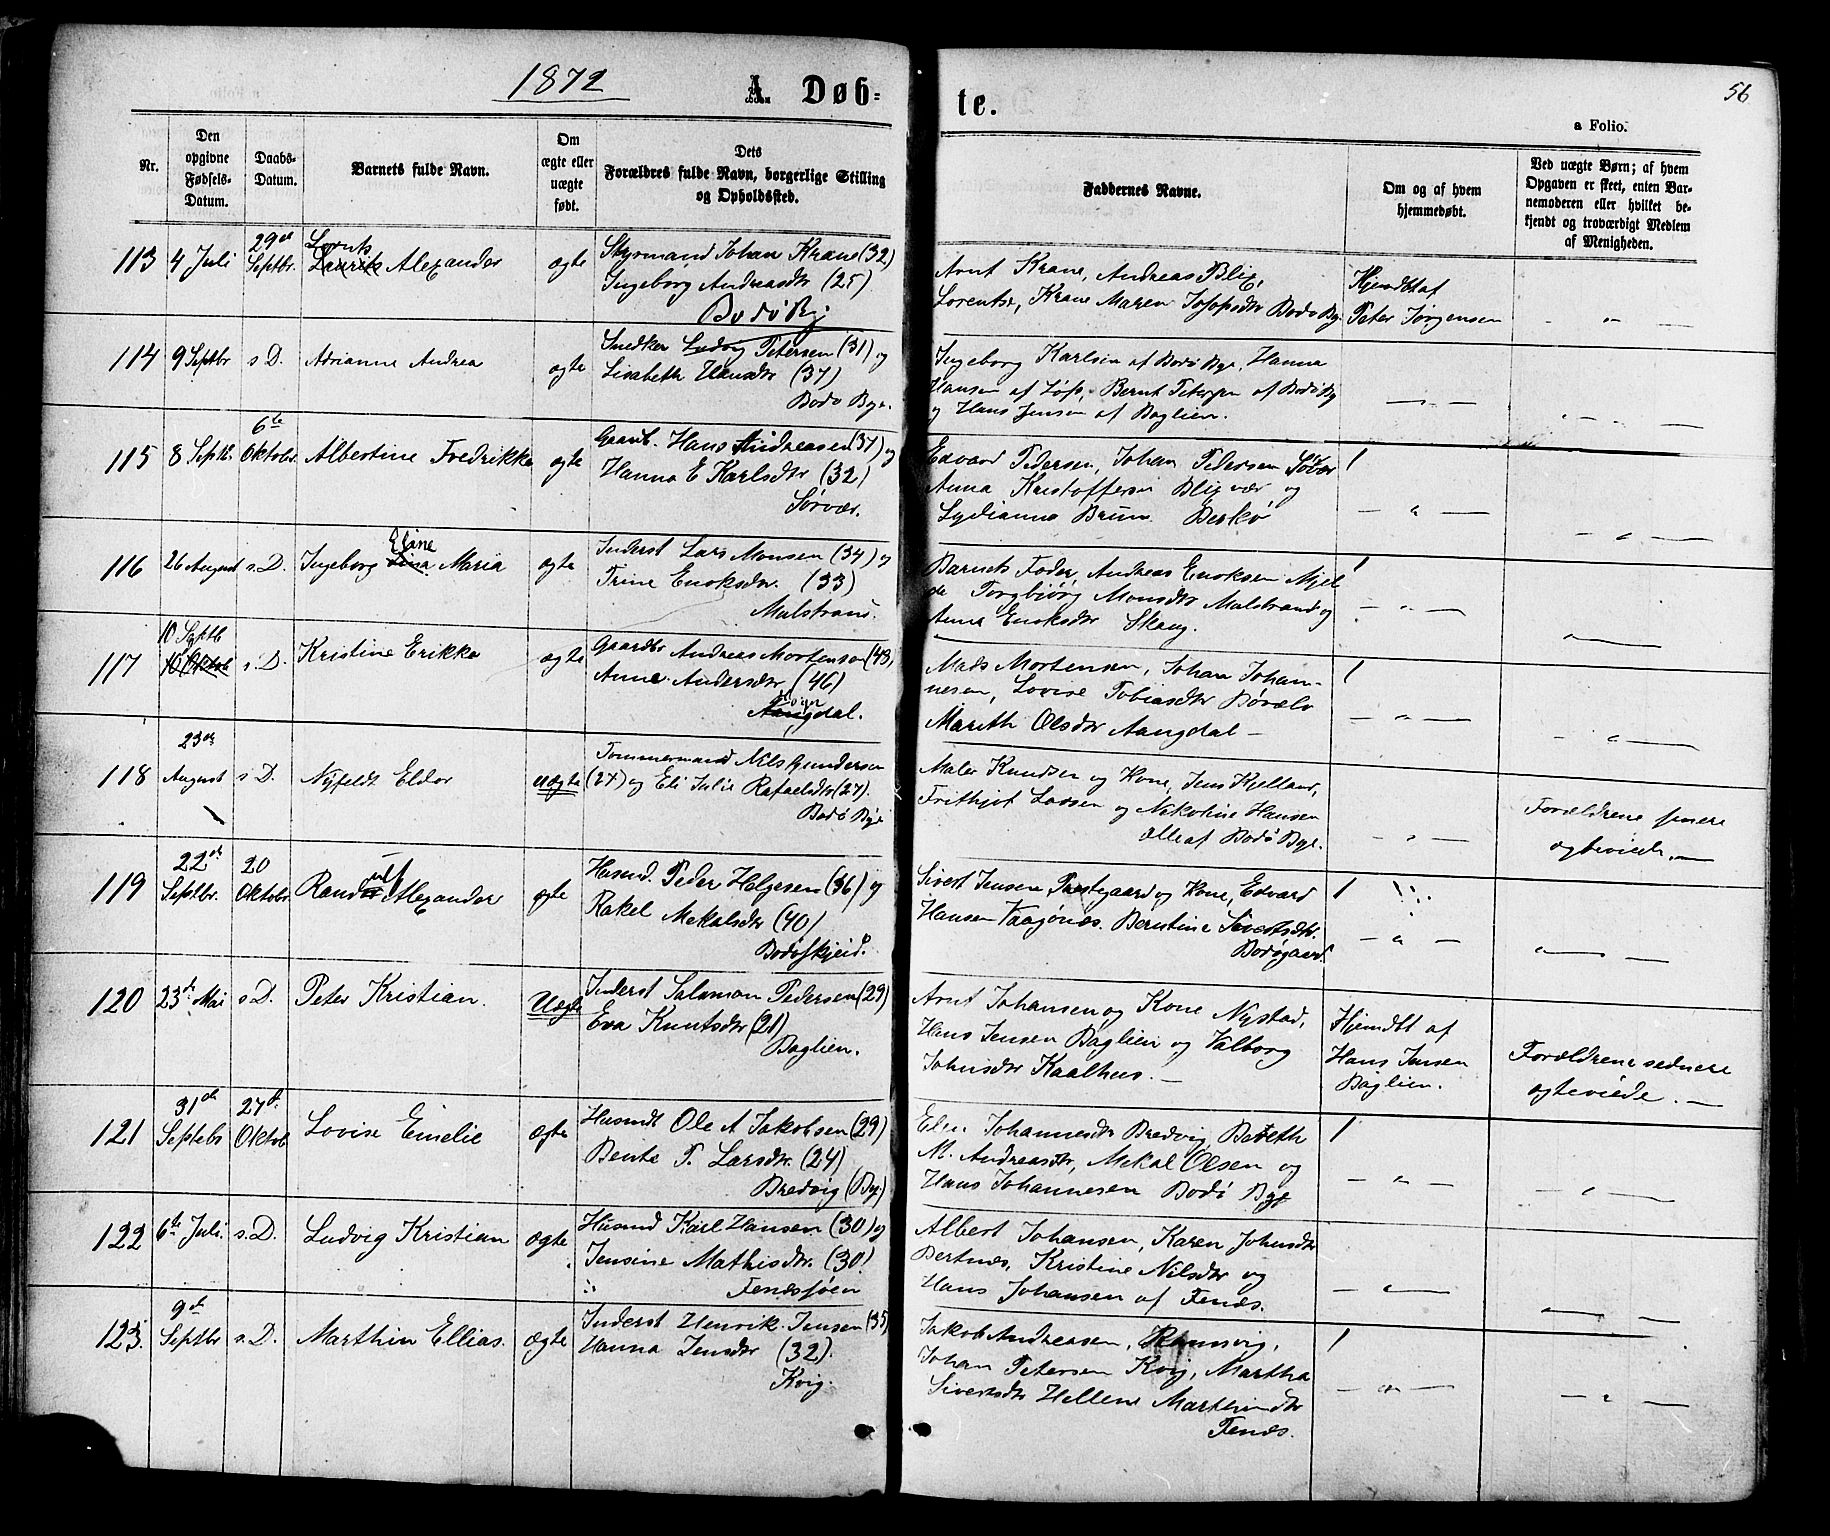 1872
A. Døb-
te.
56
a Folio.
Nr.
Den
opgivne
Fødsels-
Datum.
Daabs-
Datum.
Barnets fulde Navn.
Om
ægte eller
uægte
født.
Dets
Forældres fulde Navn, borgerlige Stilling
og Opholdssted.
Faddernes Navne.
Om og af hvem
hjemmedøbt.
Ved uægte Børn; af hvem
Opgaven er skeet, enten Bar-
nemoderen eller hvilket be-
kjendt og troværdigt Medlem
af Menigheden.
113
4 Juli
29de
Septbr.
Alexander
ægte
Styrmand Johan Krane (32)
Ingeborg Andreasdtr (25)
Bodø By
Arnt Krane, Andreas Blix,
Lorentse, Krane Maren Bodø By
Hjemdbt af
Peter Jørgensen
114
9 Septbr
s. D.
Adrianne Andrea
ægte
Snedker Ludvig Petersen (31) og
Lisabeth Hansdtr (37)
Bodø Bye.
Ingeborg Karlsen af Bodø Bye, Hanna
Hansen af Løp, Bernt Petersen af Bodø By
og Hans Jensen af Baglien.
115
8 Septb.
6te
Oktobr.
Albertine Fredrikke
ægte
Gaardb. Hans Andreasen (37) og
Hanna E Karlsdtr (32)
Sørvær.
Edvard Pedersen, Johan Pedersen
Anna Kristoffersen Blixvær og
Lydianna Bruun
1
116
26 August
s. D.
Eline
Ingeborg Lina Maria
ægte
Inderst Lars Monsen (34) og
Trine Enoksdtr. (33)
Malstrand.
Barnets Fader, Andreas Enoksen Mjel
de Torgbjørg Monsdtr Malstrand og
Anna Enoksdtr Skaug.
1
117
10 Septb
10 Oktob
s. D.
Kristine Erikke
ægte
Gaardbr Andreas Mortensen (43)
Anne Andersdtr (46)
Mads Mortensen, Johan Johan-
nesen, Lovise Tobiasdtr Bøvelv
Mareth Olsdtr Aangdal
1
118
23de
August
s. D.
Nyfeldt Eldor
uægte
Tømmermand Nils Gundersen
(27) og Eli Julie Rafaelsdtr (27).
Bodø Bye
Maler Knudsen og Kone, Jens Kjelland,
Frithjof Larsen og Nikoline Hansen
Alle af Bodø Bye.
Forældrene senere
ægteviede.
119
22de
Septbr.
20
Oktobr.
ulf
Alexander
ægte
Husmd. Peder Helgesen (36) og
Rakel Mekalsdtr (40)
Bodøskjeid.
Sivert Jensen, Præstegaard og Kone, Edvard
Hansen Vaagønæs. Berntine Sivertsdtr.
Bodøgaard.
1
120
23de Mai
s. D.
Peter Kristian.
Uægte
Inderst Salamon Pedersen (29)
Eva Knutsdtr (21)
Baglien.
Arnt Johansen og Kone Nystad,
Hans Jensen Baglien og Valborg
Johnsdtr Kaalhus.
Hjemdbt af
Hans Jensen
Baglien.
Forældrene sednere
ægteviede.
121
31de
Septebr
27de
Oktob
Lovise Emelie
ægte
Husmdt Ole A Jakobsen (29)
Bente P. Larsdtr. (24)
Bredvig (By)
Johannesdtr Bredvig, Bereth
M. Andreasdtr, Mekal Olsen og
Hans Johannesen Bodø Bye
1
122
6te Juli.
s. D.
Ludvig Kristian
ægte
Husmd Karl Hansen (30) og
Jensine Mathisdtr. (30)
Fenessjøen
Albert Johansen, Karen Johnsdtr
Bertnæs, Kristine Nilsdtr og
Hans Johansen af Fenes.
123.
9de
Septbr
s. D.
Marthin Ellias.
ægte
Inderst Henrik Jensen (35)
Hanna Jensdtr (32).
Kvig.
Jakob Andreasen,
Johan Petersen Kvig, Martha
Sivertsdtr Hellene Marthindtr
Fenes.
1